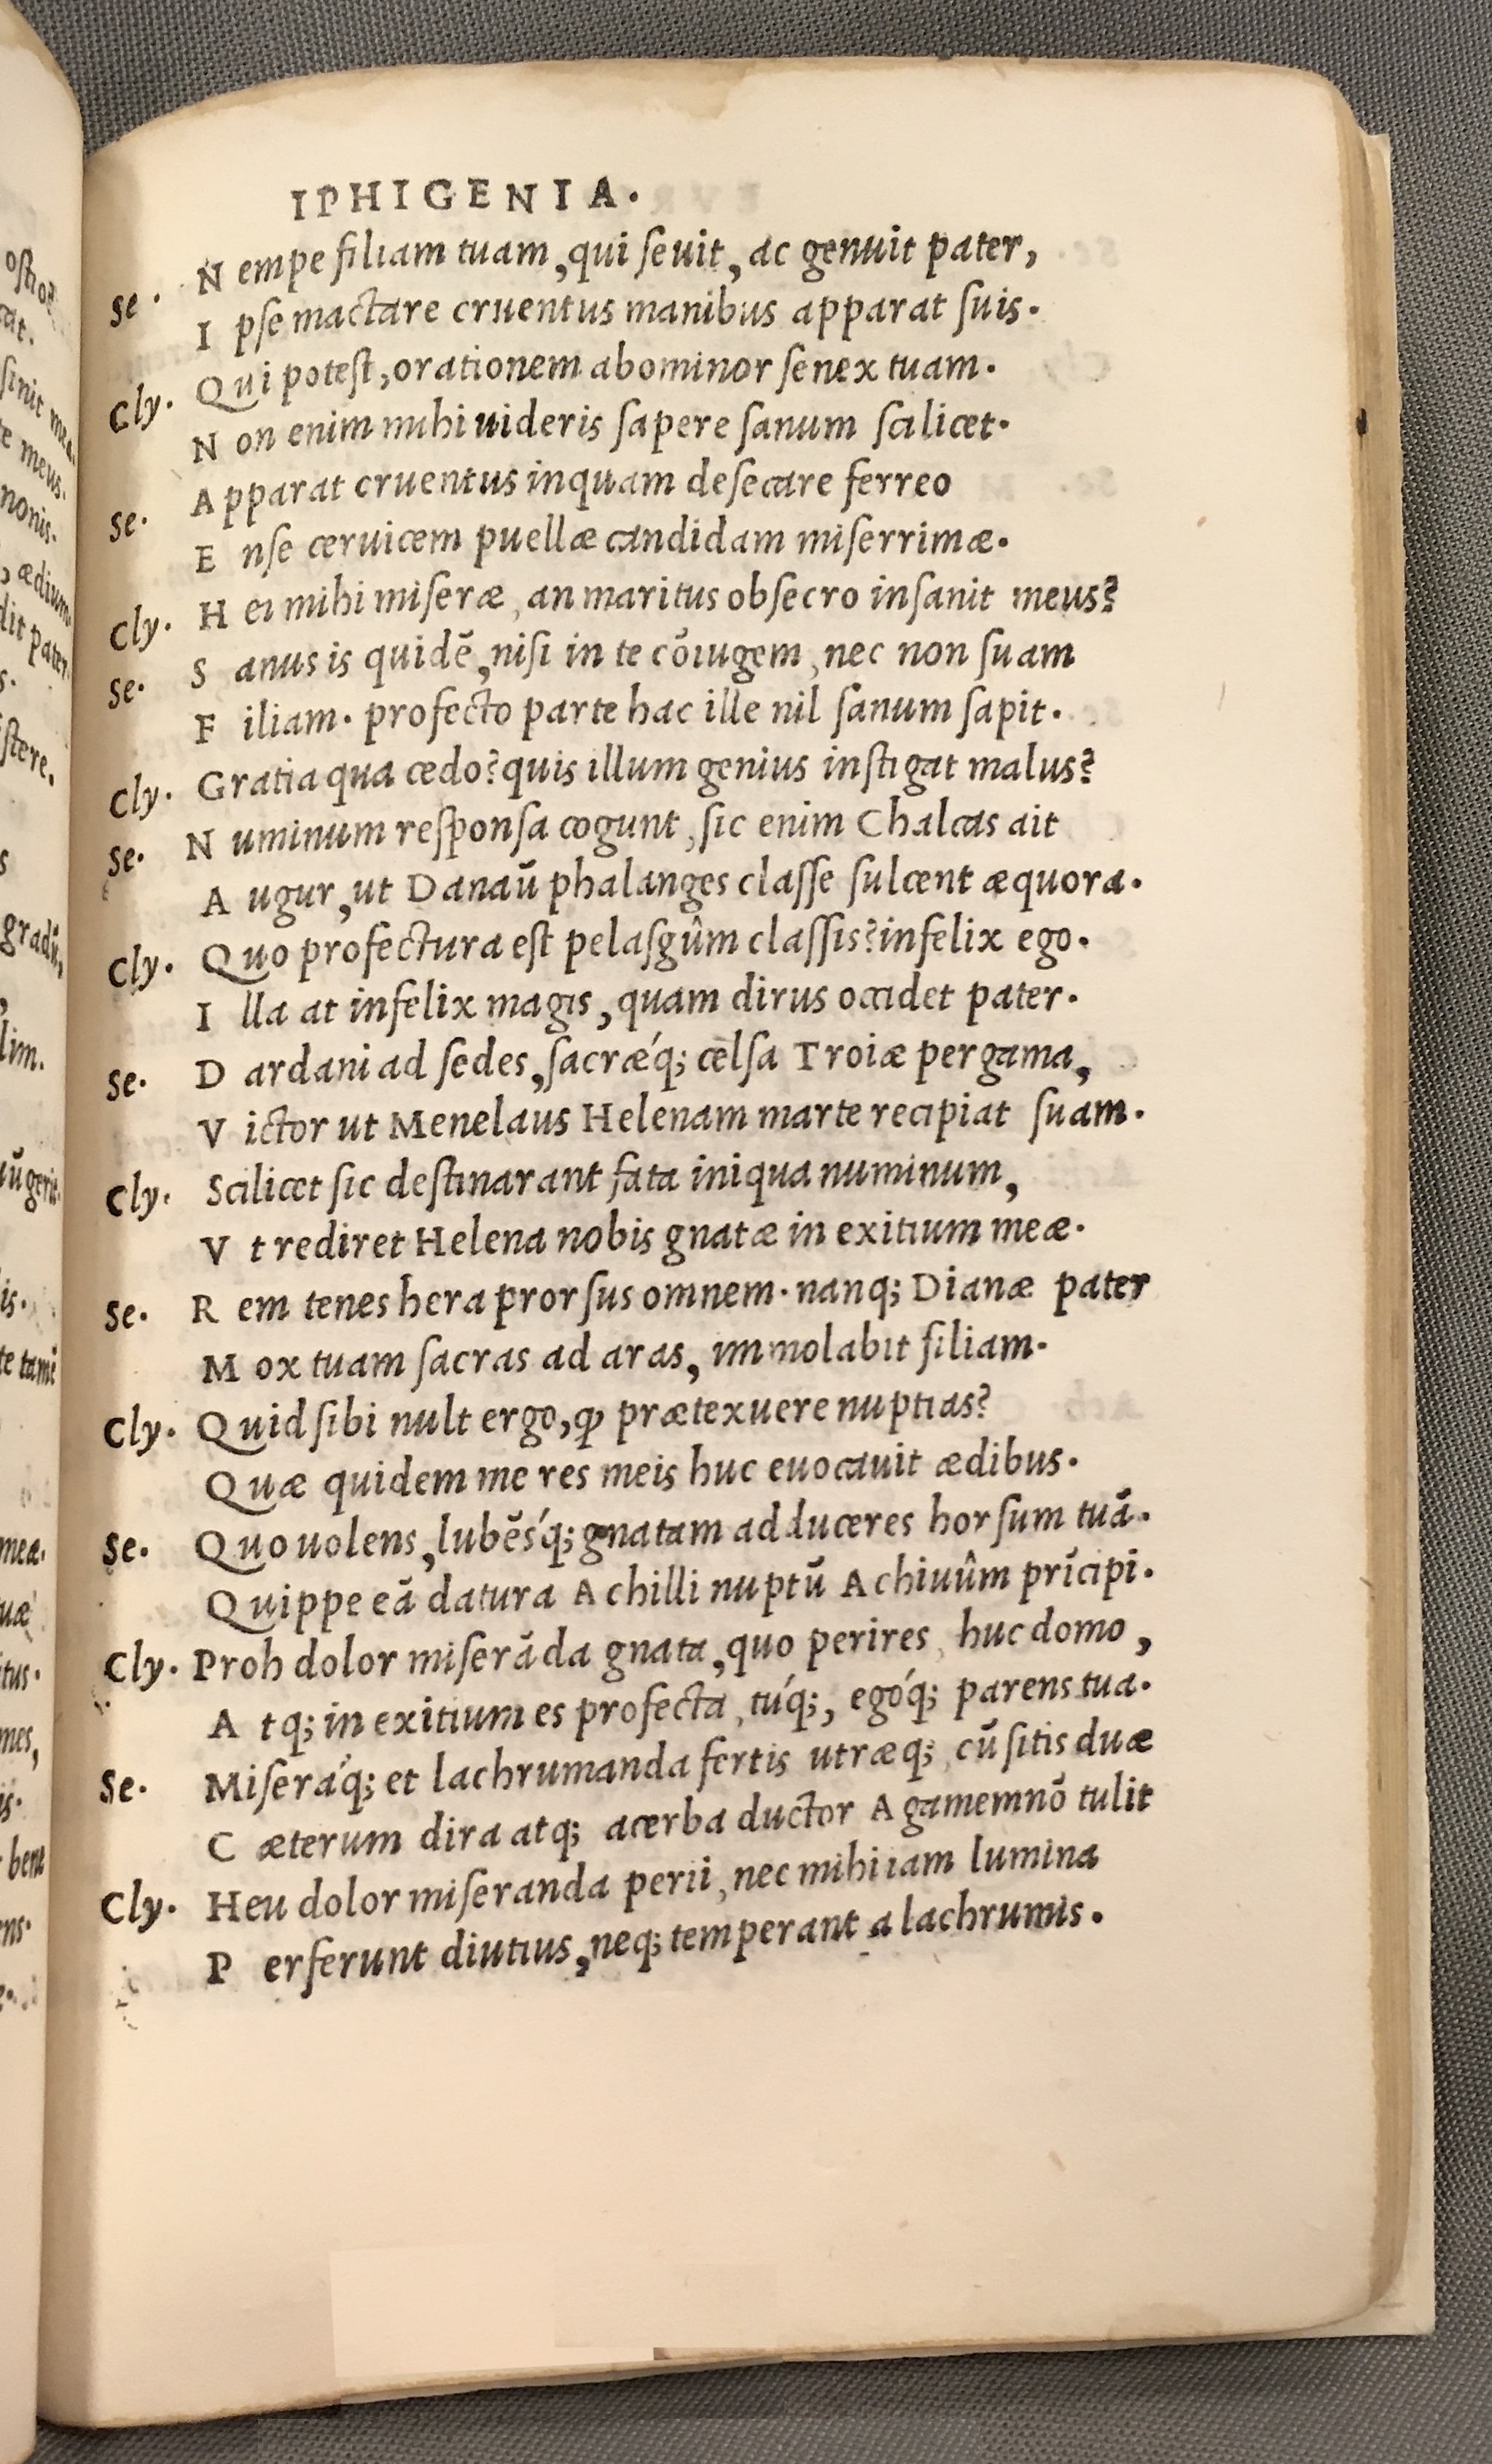 IPHIGENIA.
Se. N empe filiam tuam, qui seuit, ac genuit pater,
I pse mactare cruentus manibus apparat suis.
Cly. Qui potest, orationem abominor senex tuam.
N on enim mihi uideris sapere sanum scilicet.
Se. Apparat cruentus inquam desecare ferreo
E nse ceruicem puellæ candidam miserrimæ.
Cly. H ei mihi miseræ, an maritus obsecro insanit meus?
Se. S anus is quidē, nisi in te cōiugem, nec non suam
F iliam. profecto parte hac ille nil sanum sapit.
Cly. Gratia qua cedo? quis illum genius instigat malus?
Se. N uminum responsa cogunt, sic enim Chalcas ait
A ugur, ut Danaū phalanges classe sulcent æquora.
Cly. Quo profectura est pelasgûm classis? infelix ego.
I lla at infelix magis, quam dirus occidet pater.
Se. D ardani ad sedes, sacrǽq; celsa Troiæ pergama,
V ictor ut Menelaus Helenam marte recipiat suam.
Cly. Scilicet sic destinarant fata iniqua numinum,
V t rediret Helena nobis gnatæ in exitium meæ.
Se. R em tenes hera prorsus omnem. nanq; Dianæ pater
M ox tuam sacras ad aras, immolabit filiam.
Cly. Quid sibi nult ergo, ꝙ prætexuere nuptias?
Quæ quidem me res meis huc euocauit ædibus.
Se. Quo uolens, lubēsq́; gnatam adduceres horsum tuā.
Quippe eā datura Achilli nuptū Achiuûm prīcipi.
Cly. Proh dolor miserāda gnata, quo perires, huc domo,
A tq; in exitium es profecta, túq;, egóq; parens tua.
Se. Miseráq; et lachrumanda fertis utræq; cū sitis duæ
C æterum dira atq; acerba ductor Agamemnō tulit
Cly. Heu dolor miseranda perii, nec mihi iam lumina
P erferunt diutius, neq; temperant a lachrumis.